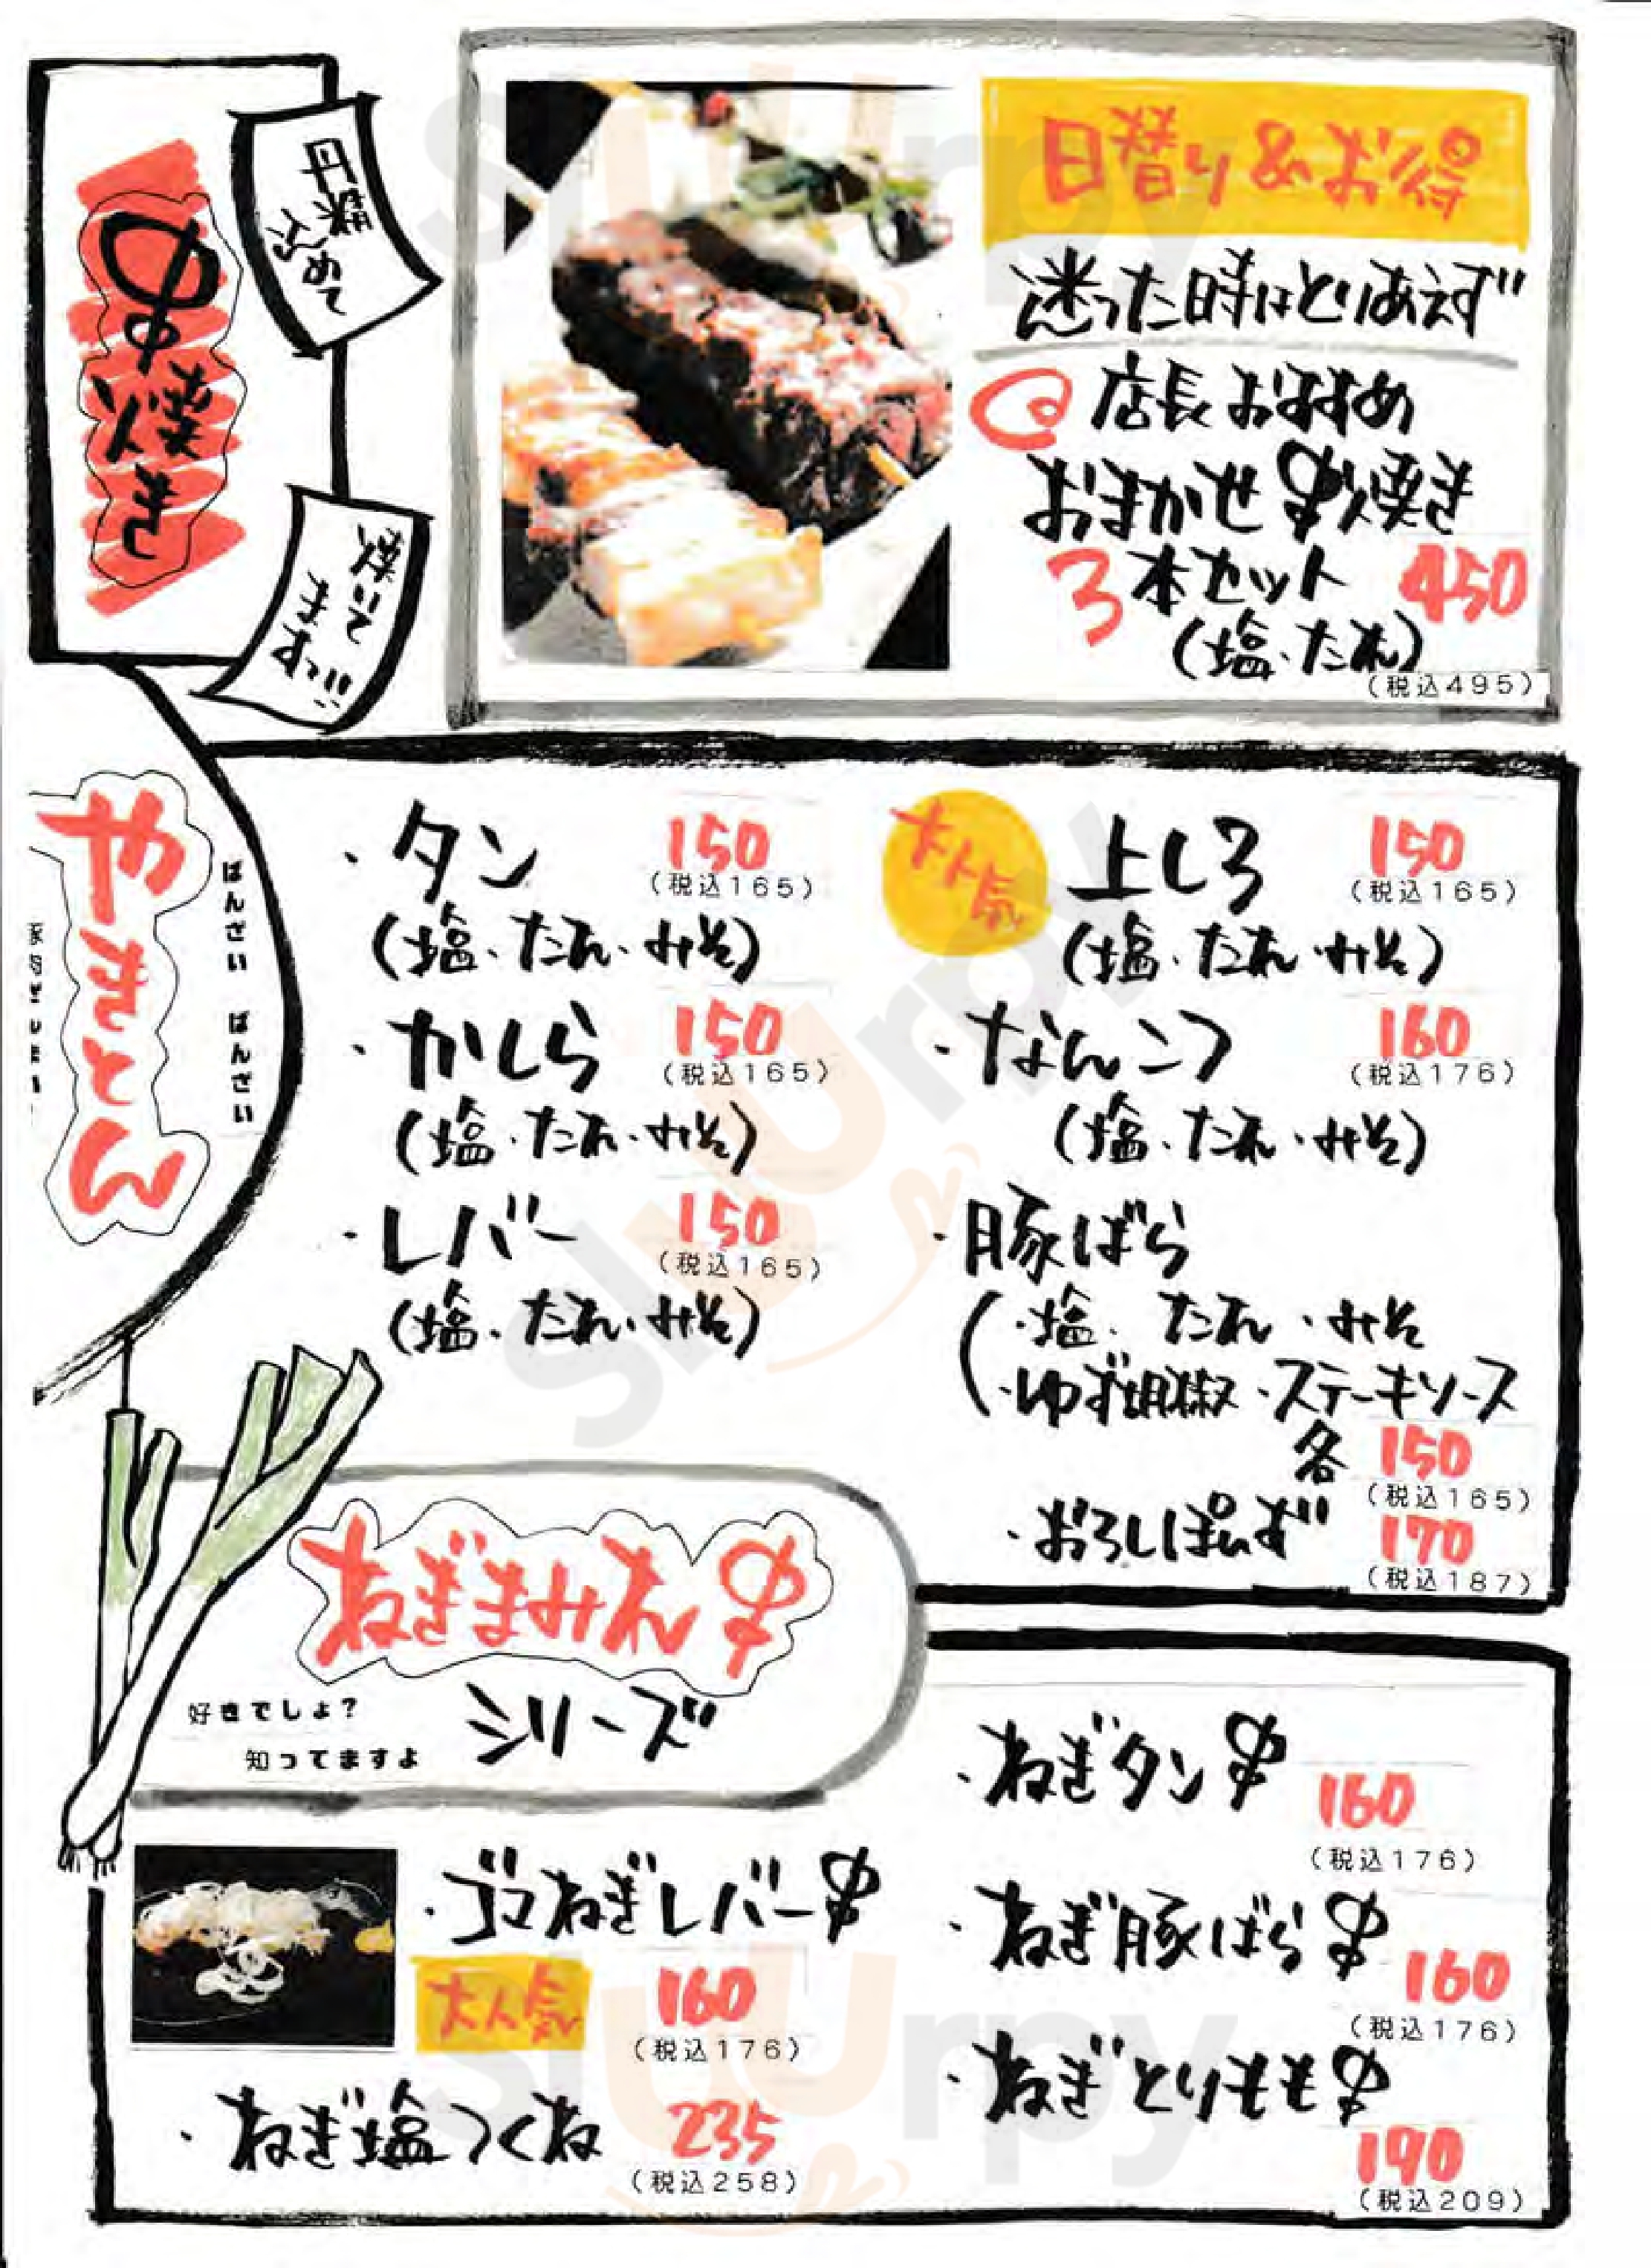 串焼き
丹精
込めて
焼いて
ます!!
日替り&お得
迷った時はとりあえず
店長おすすめ
おまかせ串焼き
3本セット 450
(塩・たれ)
(税込495)
やきとん
ばんざい ばんざい
・タン 150
(税込165)
(塩・たれ・みそ)
・かしら 150
(税込165)
(塩・たれ・みそ)
・レバー 150
(税込165)
(塩・たれ・みそ)
大人気
上しろ 150
(税込165)
(塩・たれ・みそ)
・なんこつ 160
(税込176)
(塩・たれ・みそ)
・豚ばら
(・塩・たれ・みそ
・ゆず胡椒・ステーキソース
各 150
(税込165)
・おろしぽんず 170
(税込187)
ねぎまみれ串
シリーズ
好きでしょ?
知ってますよ
・ゴマねぎレバー串
大人気 160
(税込176)
・ねぎ塩つくね 235
(税込258)
・ねぎタン串 160
(税込176)
・ねぎ豚ばら串 160
(税込176)
・ねぎとりもも串 190
(税込209)
slurpy
slurpy
slurpy